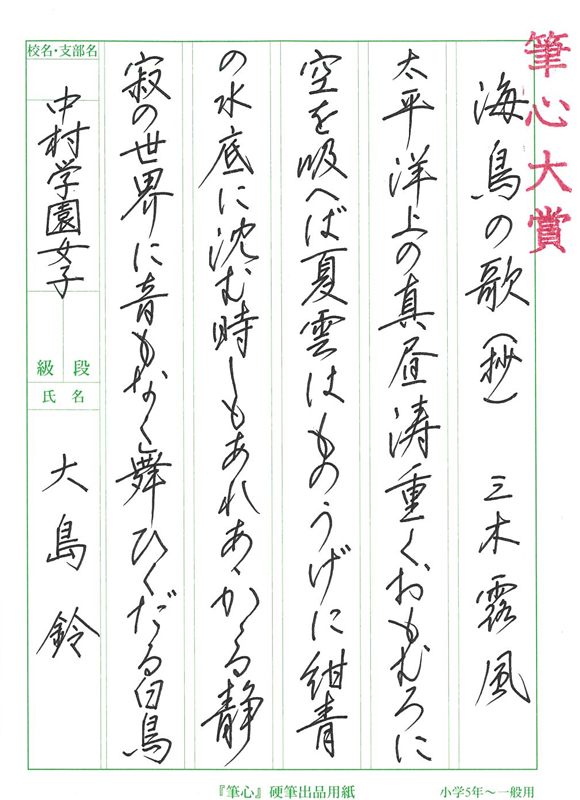 筆心大賞
海鳥の歌（抄）　三木露風
太平洋上の真昼涛重くおもむろに
空を吸へば夏雲はものうげに紺青
の水底に沈む時しもあれあゝかゝる静
寂の世界に音もなく舞ひくだる白鳥
校名・支部名
中村学園女子
級 段
氏名
大島鈴
『筆心』硬筆出品用紙
小学5年〜一般用